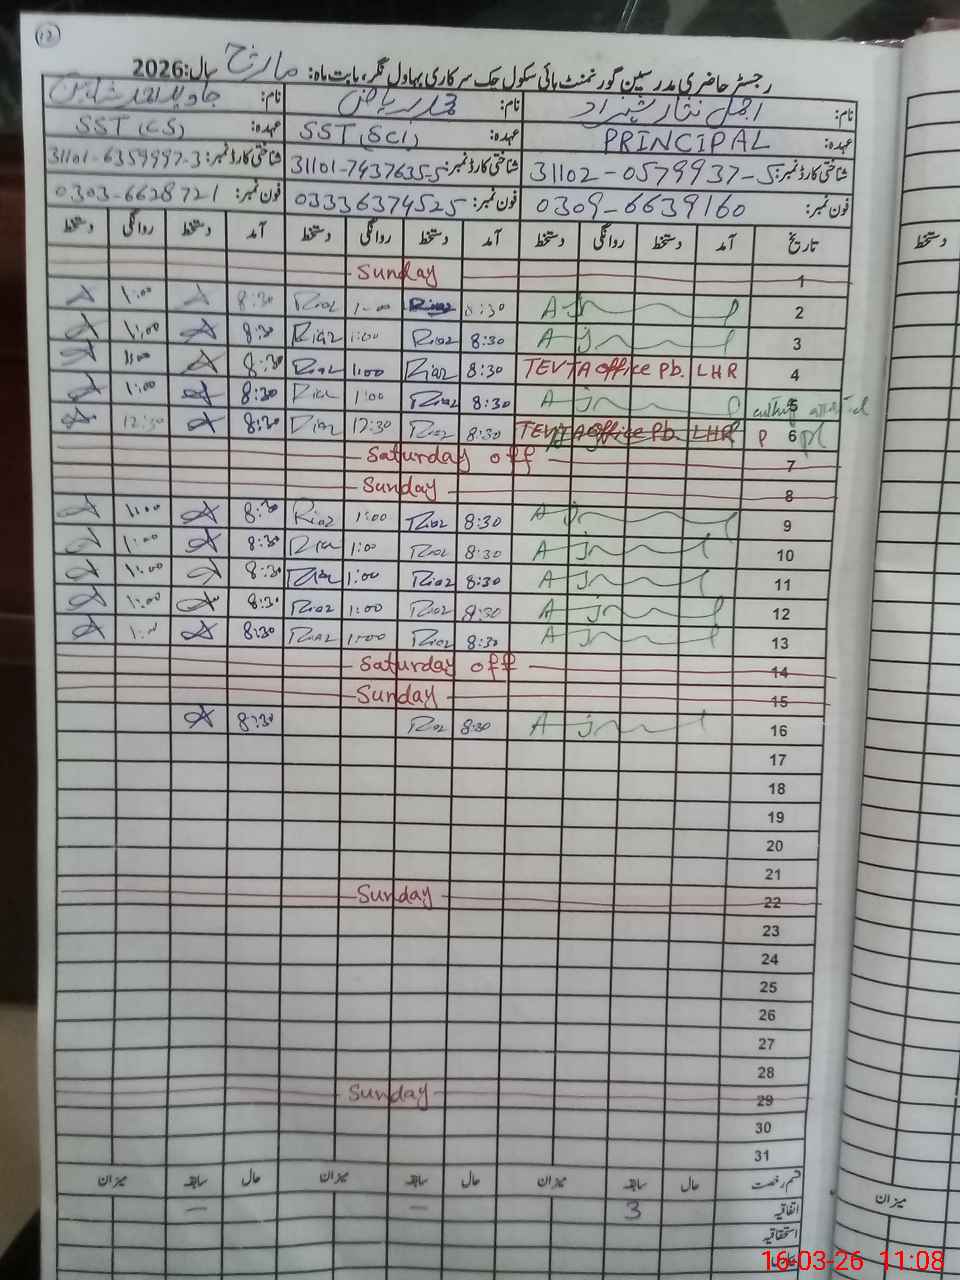 12
رجسٹر حاضری مدرسین گورنمنٹ ہائی سکول چک سرکاری بہاول نگر، بابت ماہ: مارچ سال: 2026
نام: اجمل نثار شہزاد نام: محمد ریاض نام: جاوید احمد شاہین
عہدہ: PRINCIPAL عہدہ: SST (SCI) عہدہ: SST (CS)
شناختی کارڈ نمبر: 31102-0579937-5 شناختی کارڈ نمبر: 31101-7437635-5 شناختی کارڈ نمبر: 31101-6359997-3
فون نمبر: 0309-6639160 فون نمبر: 03336374525 فون نمبر: 0303-6628721
تاریخ آمد دستخط روانگی دستخط آمد دستخط روانگی دستخط آمد دستخط روانگی دستخط دستخط
1 Sunday
2 8:30 Riaz 1:00 Riaz 8:30 1:00
3 8:30 Riaz 1:00 Riaz 8:30 1:00
4 TEVTA office Pb. LHR 8:30 Riaz 1:00 Riaz 8:30 1:00
5 8:30 Riaz 1:00 8:30 1:00
6 P TEVTA office Pb. LHR 8:30 Riaz 12:30 Riaz 8:30 12:30
7 Saturday off
8 Sunday
9 8:30 Riaz 1:00 Riaz 8:30 1:00
10 8:30 Riaz 1:00 Riaz 8:30 1:00
11 8:30 Riaz 1:00 Riaz 8:30 1:00
12 8:30 Riaz 1:00 Riaz 8:30 1:00
13 8:30 Riaz 1:00 Riaz 8:30
14 Saturday off
15 Sunday
16 8:30 Riaz 8:30
17
18
19
20
21
22 Sunday
23
24
25
26
27
28
29 Sunday
30
31
قسم رخصت حال سابقہ میزان حال سابقہ میزان حال سابقہ میزان میزان
اتفاقیہ 3 - -
استحقاقیہ
16-03-26 11:08